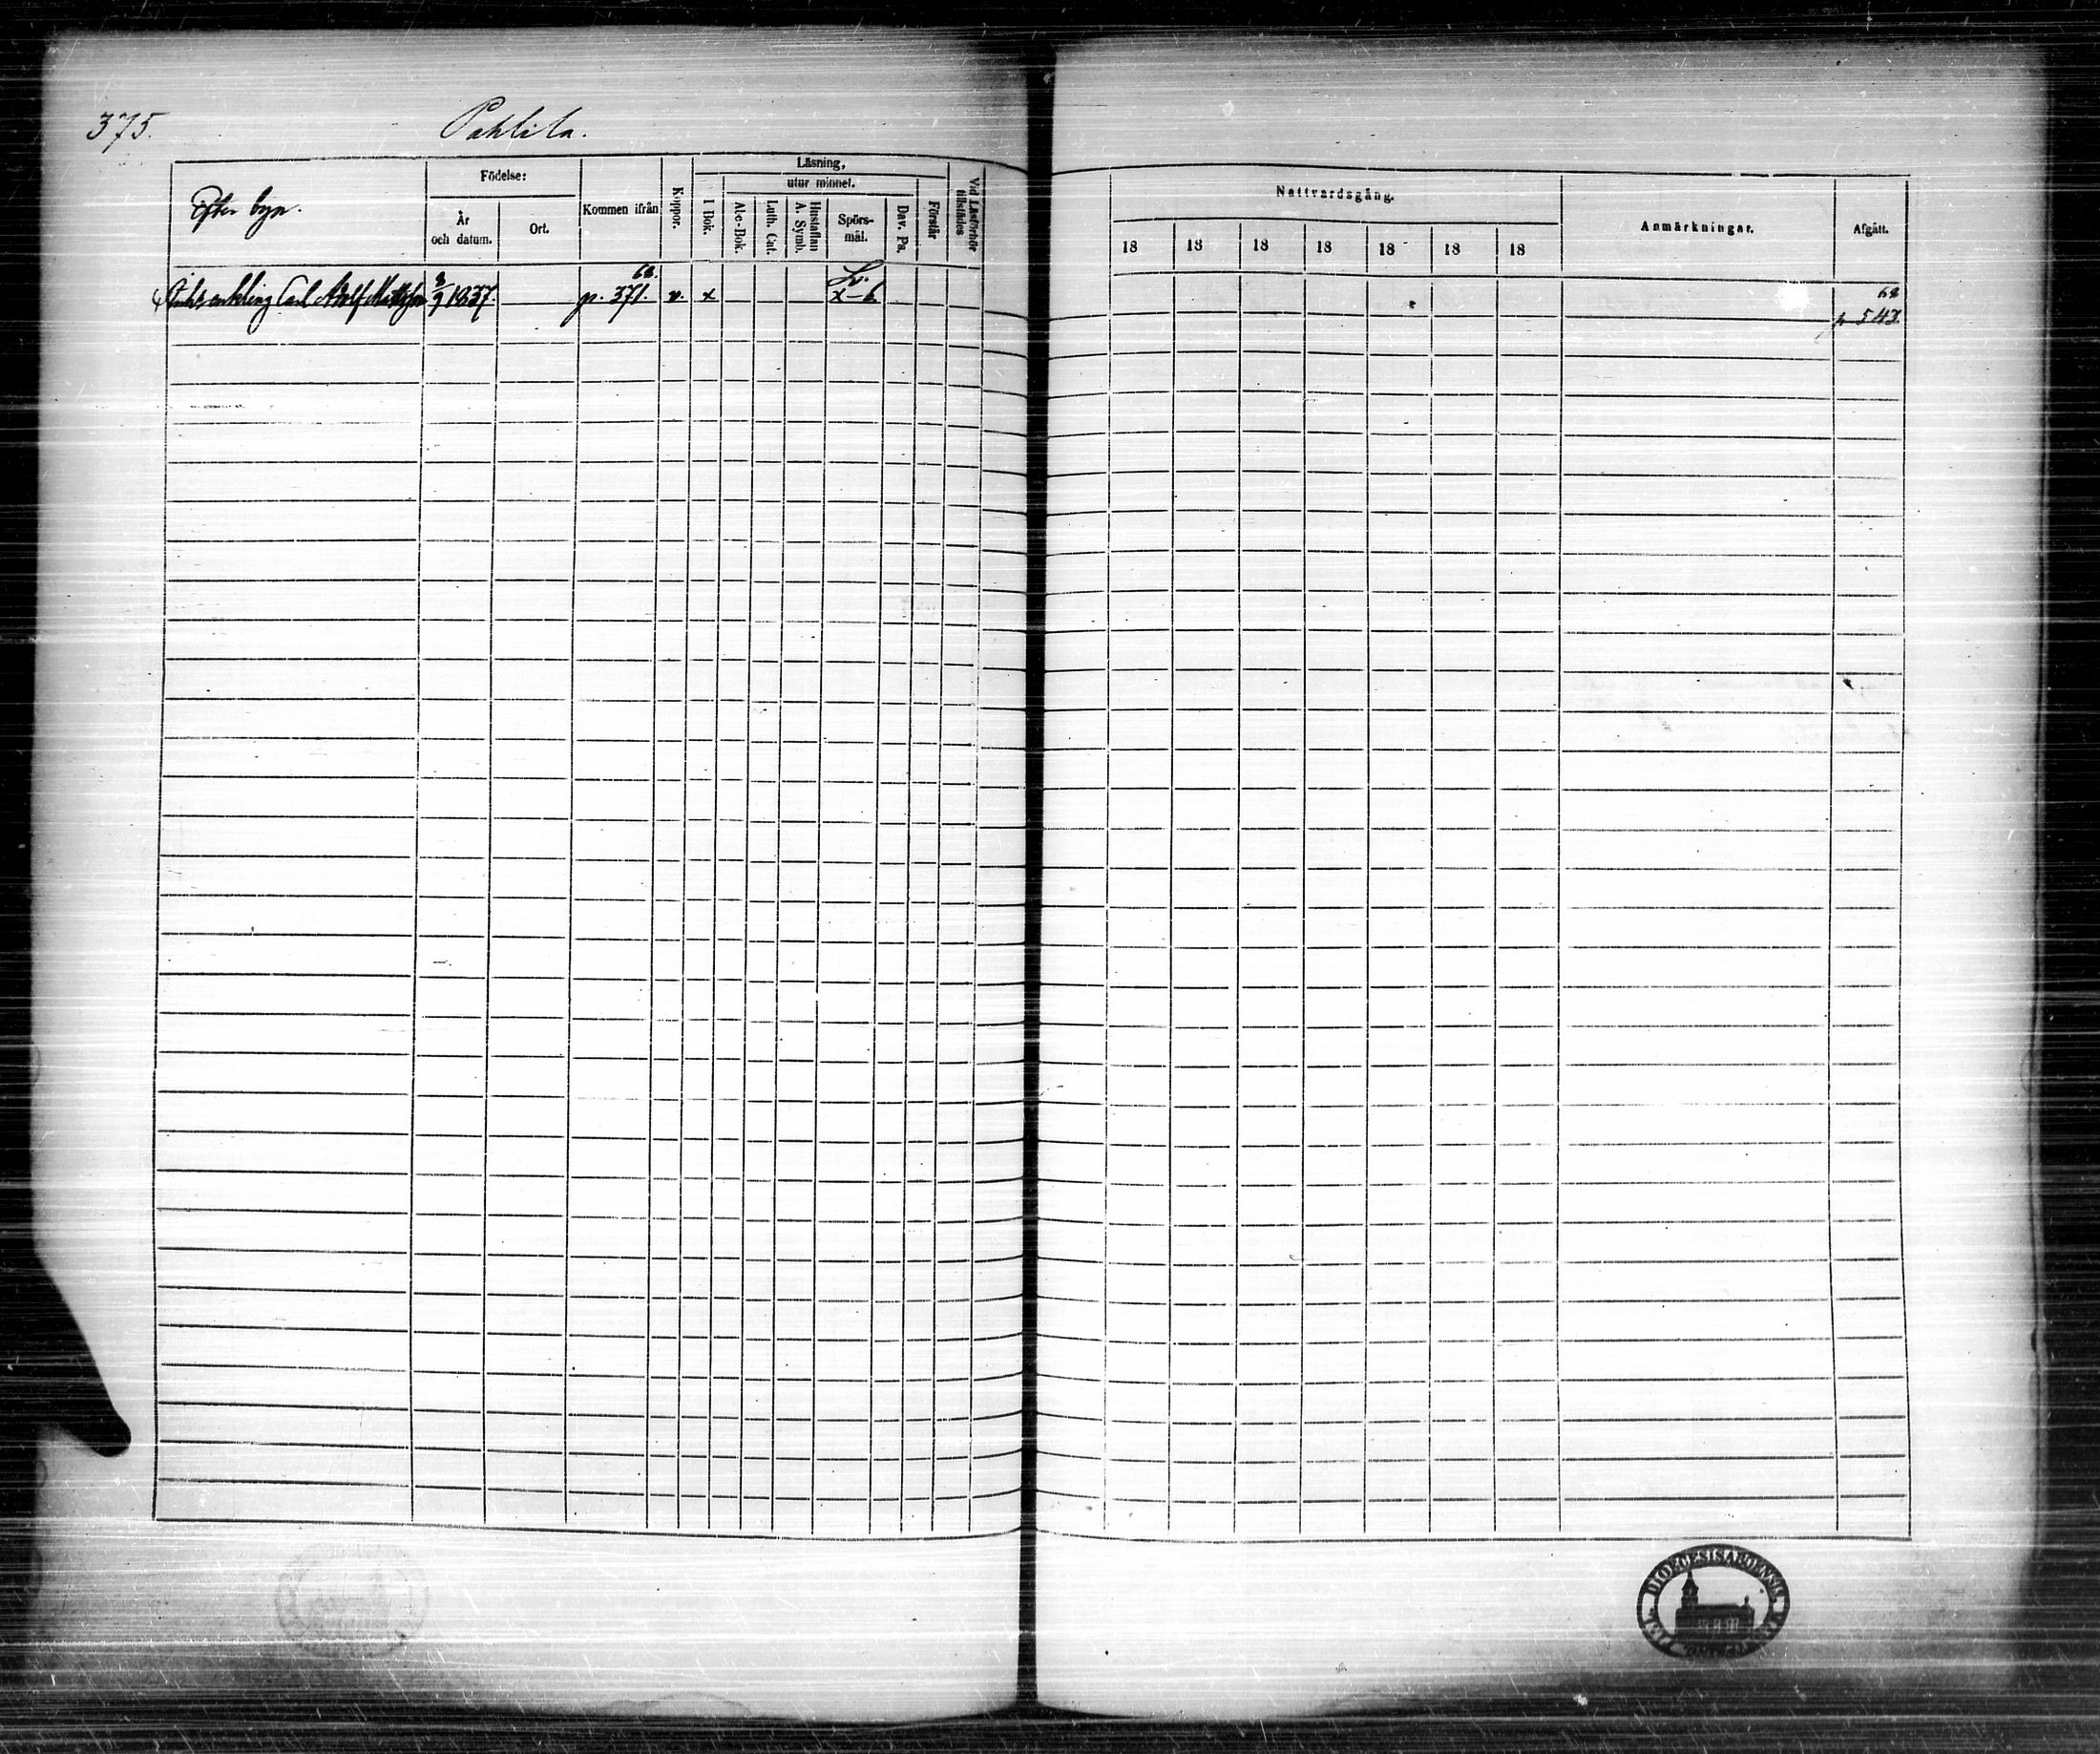 375.
Pahlila.
Efter byn.
Födelse:
År och datum.
Ort.
Kommen ifrån
Koppor.
Läsning,
I Bok.
utur minnet.
Abc-Bok.
Luth. Cat.
Hustaflan A. Symb.
Spörs-mål.
Dav. Ps.
Förstår
Vid Läsförhör tillstädes
Nattvardsgång.
18 18 18 18 18 18 18
Anmärkningar.
Afgått.
Enkling Carl Adolf Mattsson 3/9 1837. 68. p. 371. v. x x-6 68 p 543
DIOECESIS ABOENSIS